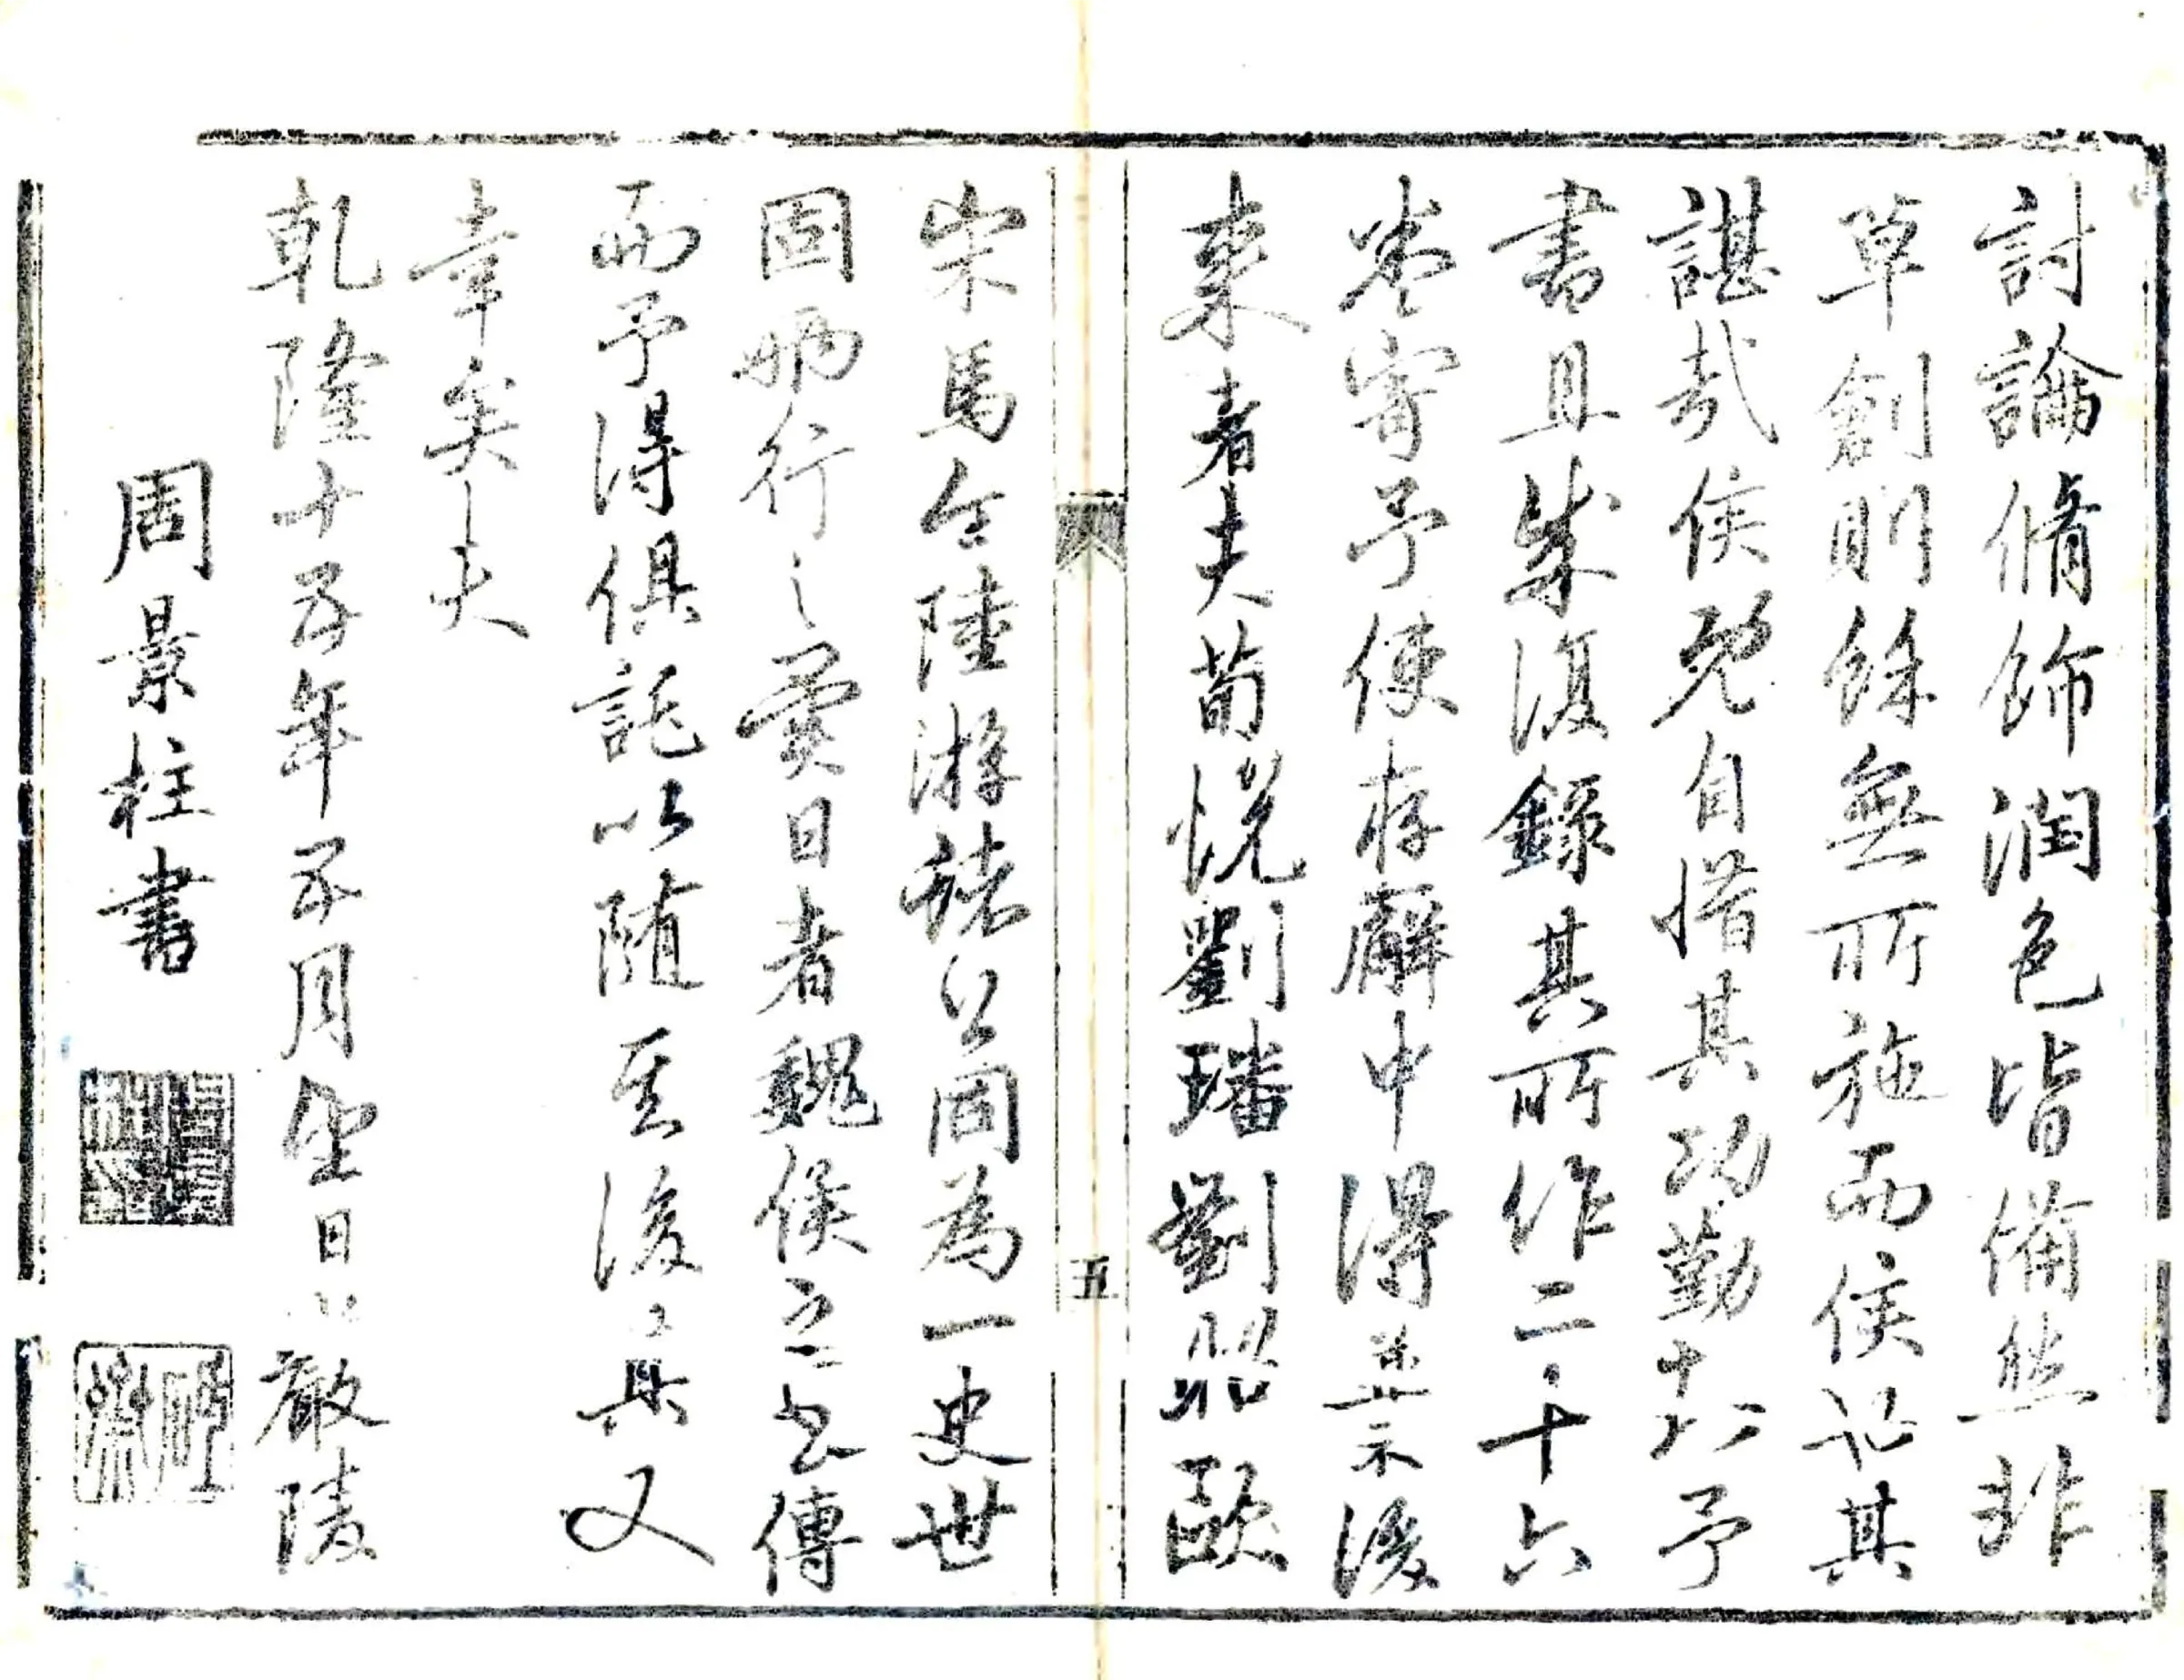 討論脩飾潤色皆備然非
草創則餘無所施而侯比其
諶哉侯既自惜其功勤十八予
書且桼復錄其所作二十六
卷寄予使存廨中得無示後
來者夫荀悅劉璠劉昭歐
宋馬令陸游諸公固為一史世
固兩行之爰日者魏侯之書傳
而予得俱託以隨至後其又
幸矣夫
乾隆十五年五月望日 嚴陵
周景柱書
五